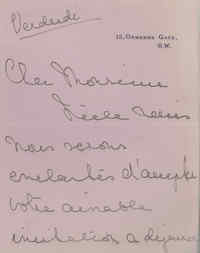 Vendredi
15, Ormonde Gate,
S.W.
Cher Monsieur
nous serons
enchantés d'accepter
votre aimable
invitation à déjeuner